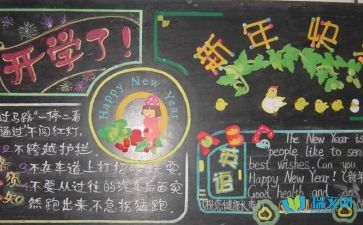 开学了!
过马路"一停二看
通过"不闯红灯.
2不跨越护栏
3不在车道上打招呼玩耍
4不要从过往的汽车后面突
然跑出来不急拐猛跑
Happy New Year
新年
英语
The New Year is
people like to send
best wishes. Can you
Happy New Year! (新年
Good health and